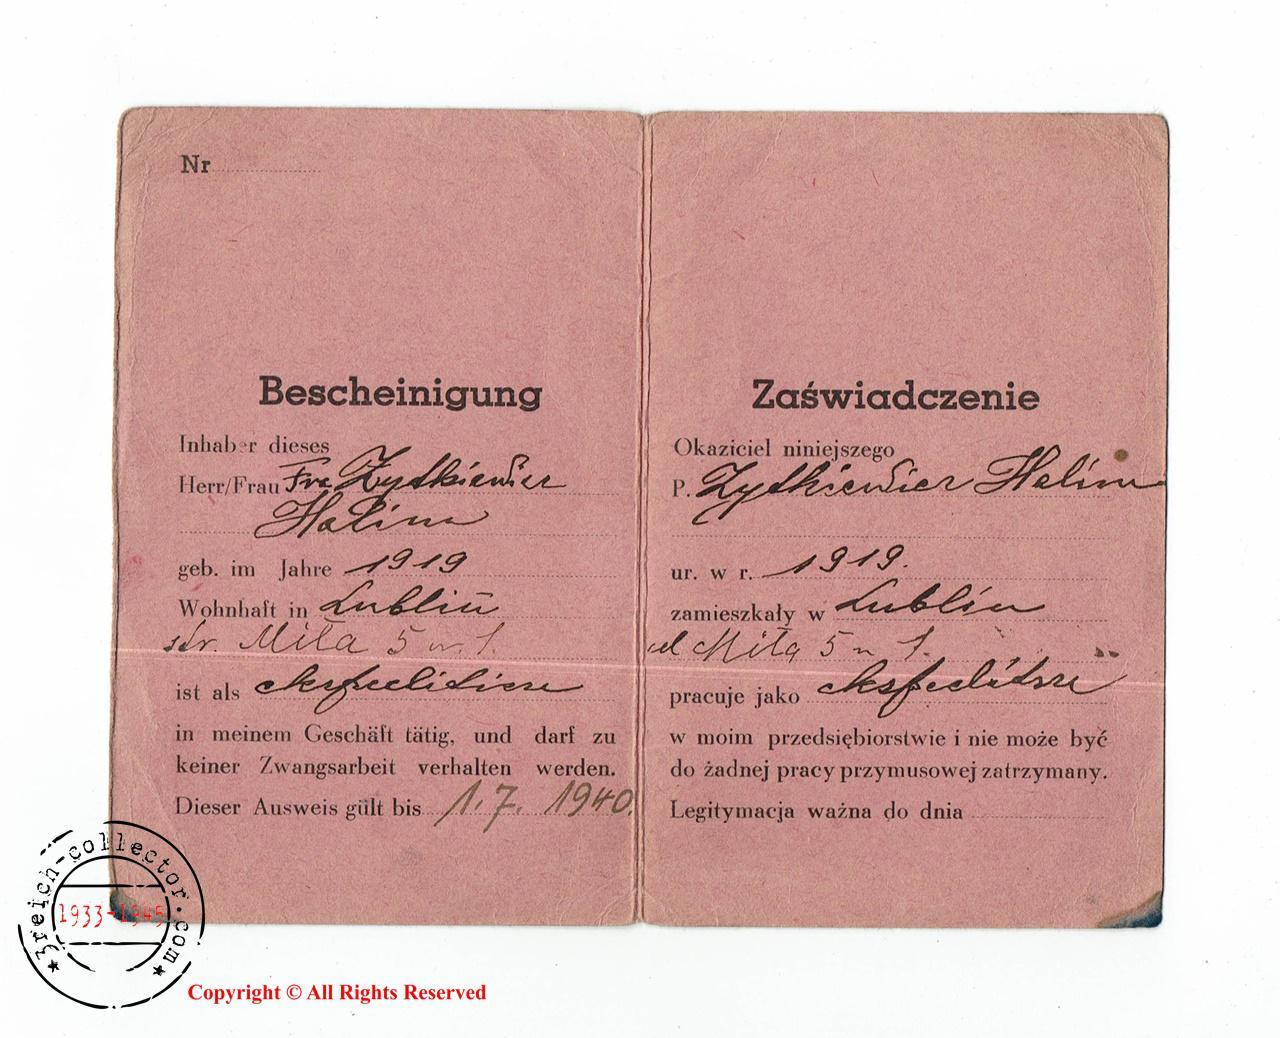 Nr
Bescheinigung
Inhaber dieses
Herr/Frau Fr. Zytkiewicz
Halina
geb. im Jahre 1919
Wohnhaft in Lublin
str. Miła 5 m 1.
ist als
in meinem Geschäft tätig, und darf zu
keiner Zwangsarbeit verhalten werden.
Dieser Ausweis gült bis 1. 7. 1940.
Zaświadczenie
Okaziciel niniejszego
P. Zytkiewicz Halina
ur. w r. 1919.
zamieszkały w Lublin
ul Miła 5 m 1.
pracuje jako
w moim przedsiębiorstwie i nie może być
do żadnej pracy przymusowej zatrzymany.
Legitymacja ważna do dnia
3reich-collector.com
1933-1945
Copyright © All Rights Reserved